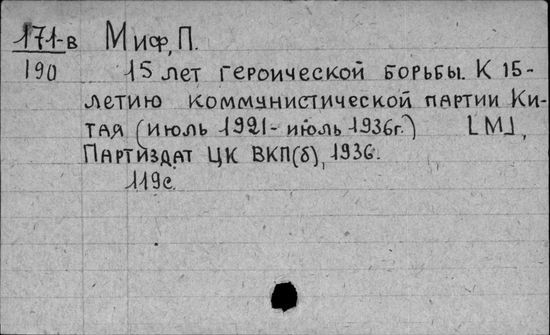 171-в Миф, П.
190 15 лет героической борьбы. К 15-
летию коммунистической партии Ки-
тая (июль 1921 - июль 1936г.) [М],
Партиздат ЦК ВКП(б), 1936.
119с.